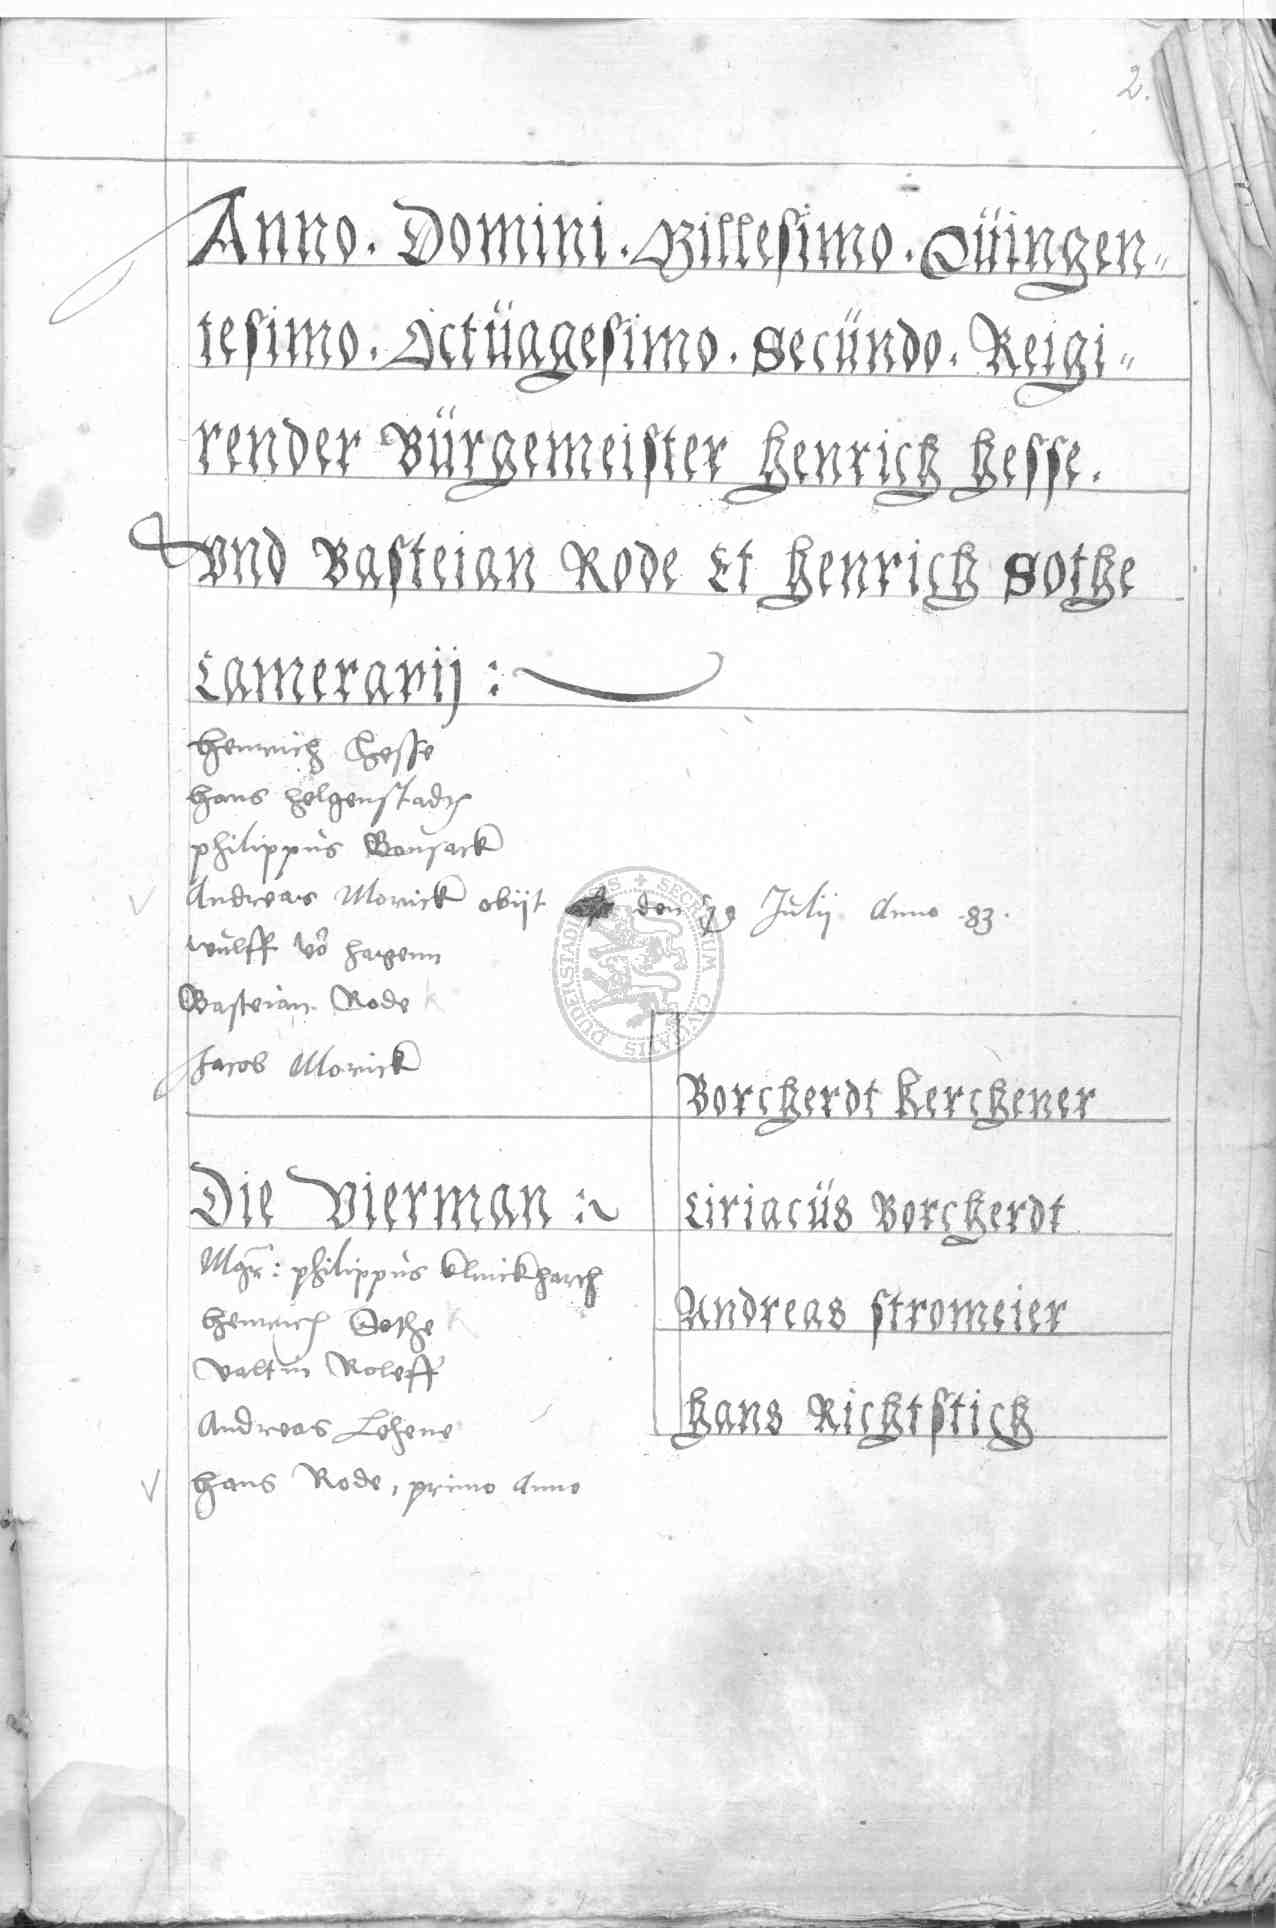 2.
Anno. Domini. Millesimo. Qüingen„
tesimo. Octüagesimo. Secündo. Reigi„
render Bürgemeister Henrich Hesse.
Vnd Basteian Rode Et Henrich Sothe
Camerarij:
Heinrich Hesse
Hans Helgenstadt
philippus Bonsack
Andreas Morick obijt den Julij Anno .83.
Wulff vō Hagenn
Basteian Rode
Jacob Morick
Die Vierman:
Mgr: philippus klinckharth
Heinrich Sothe
Valtin Roleff
Andreas Lehene
Hans Rode, primo Anno
Borcherdt Kerchener
Ciriacüs Borcherdt
Andreas Stromeier
Hans Richtstich
SECRETUM CIVITATIS DUDERSTADENSIS